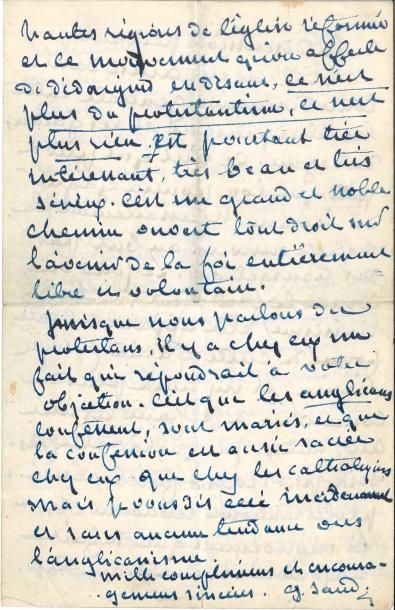 hautes régions de l'église réformée
et ce mouvement qu'on affecte
de dédaigner en disant, ce n'est
plus du protestantisme, ce n'est
plus rien, est pourtant très
intéressant, très beau et très
sérieux. C'est un grand et noble
chemin ouvert tout droit sur
l'avenir de la foi entièrement
libre et volontaire.
Puisque nous parlons des
protestans, il y a chez eux un
fait qui répondrait à votre
objection. C'est que les anglicans
confessent, sont mariés, et que
la confession est aussi sacrée
chez eux que chez les catholiques
mais je vous dis cela
et sans aucune tendance vers
l'anglicanisme.
mille complimens et encoura-
gemens sincères. G. Sand